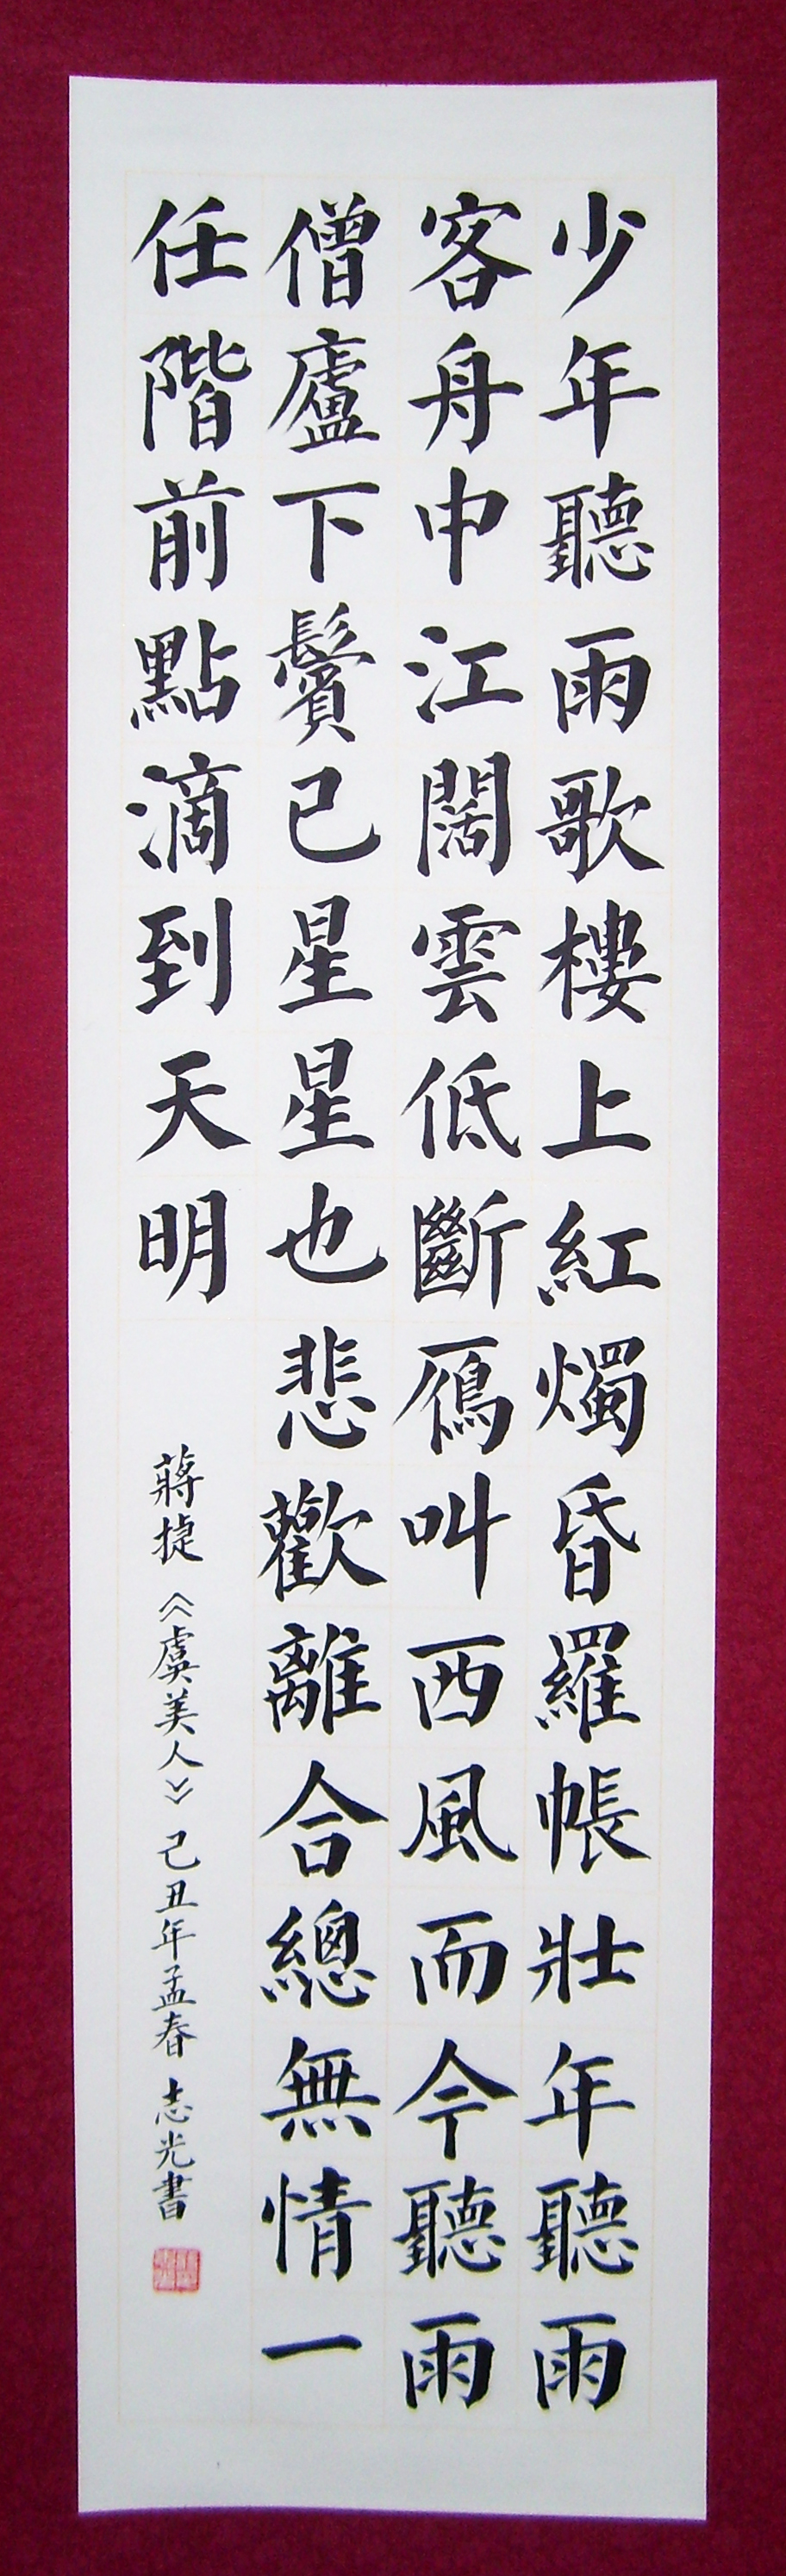 少年聽雨歌樓上紅燭昏羅帳壯年聽雨
客舟中江闊雲低斷鴈叫西風而今聽雨
僧廬下鬢已星星也悲歡離合總無情一
任階前點滴到天明
蔣捷《虞美人》己丑年孟春 志光書